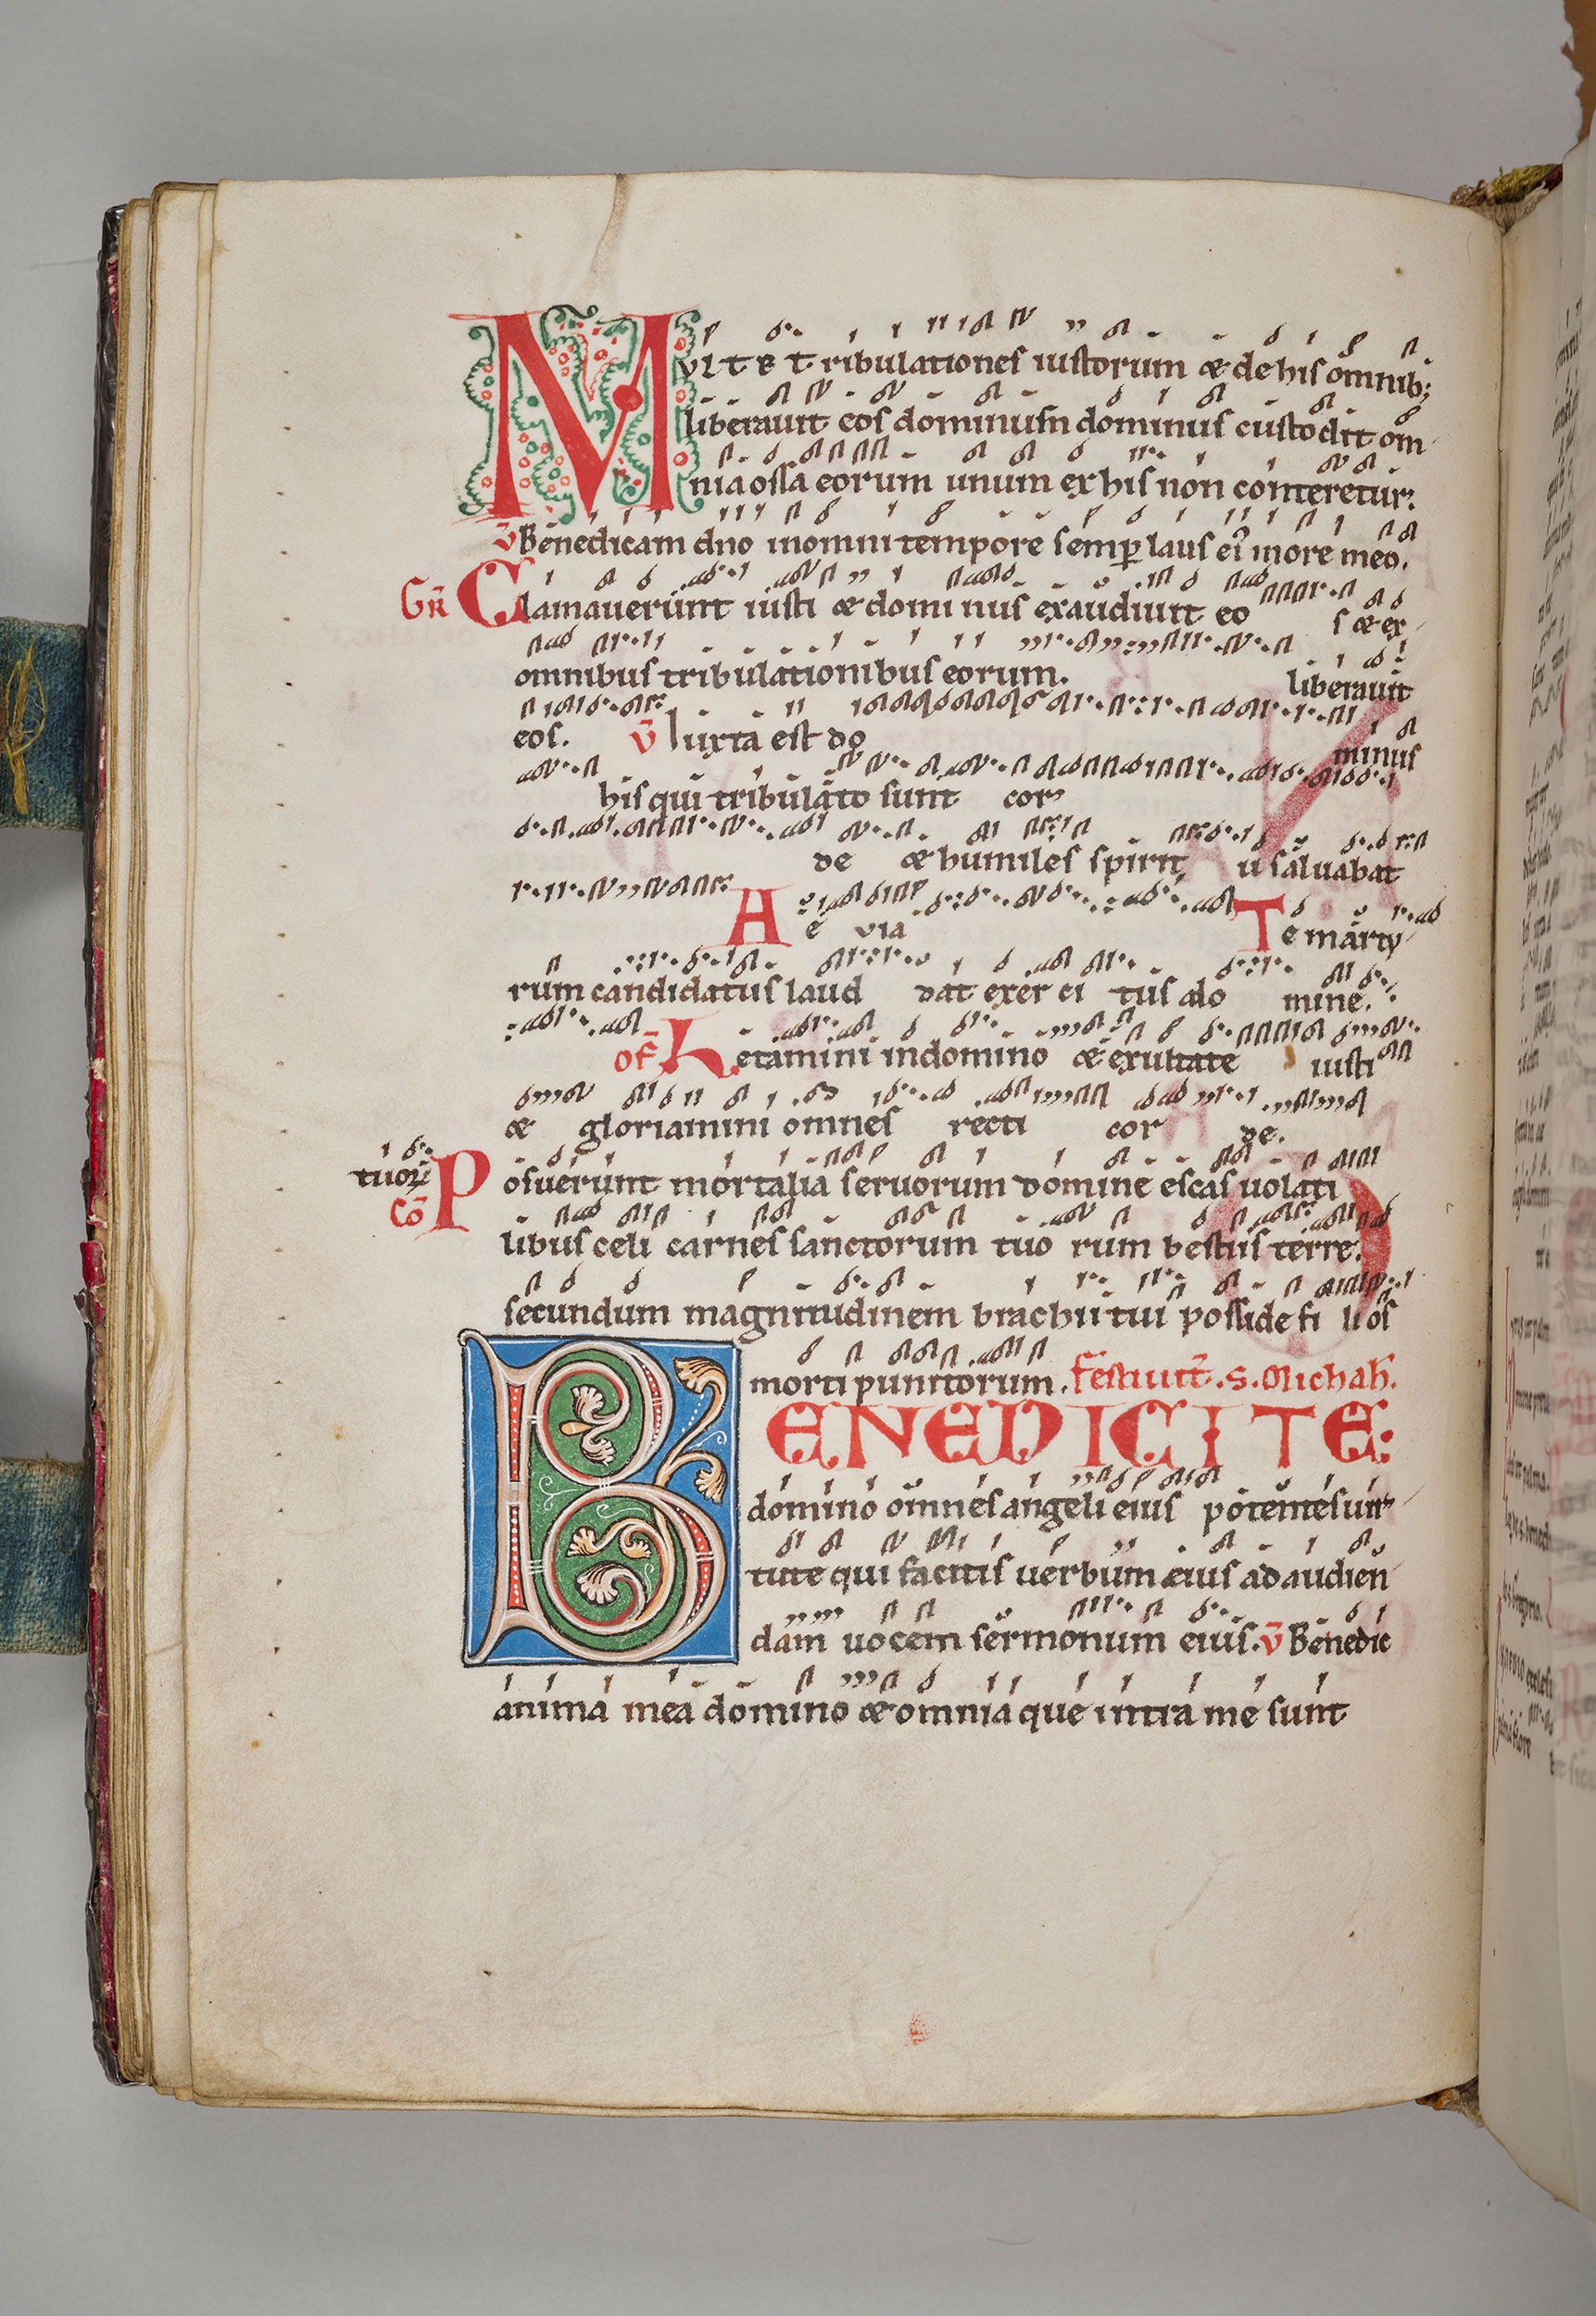 MVLTE Tribulationes iustorum æ de his omnib;
liberauit eos dominus dominus custodit om
nia ossa eorum unum ex his non conteretur:
V̄ Benedicam dno in omni tempore semp laus ei in ore meo.
GR̄ Clamauerunt iusti æ dominus exaudiuit eo s æ ex
omnibus tribulationibus eorum. liberauit
eos. V̄ Iuxta est do minus
his qui tribulato sunt cor
de æ humiles spirit u saluabat
A e via Te marty
rum candidatus laud dat exer ci tus do mine.
OF̄ Letamini in domino æ exultate iusti
æ gloriamini omnes recti cor de.
CŌ Posuerunt mortalia seruorum tuorū domine escas uolati
libus celi carnes sanctorum tuo rum bestiis terre.
secundum magnitudinem brachii tui posside fi li os
morti punitorum. Festiuit̄. S. Michah̄.
BENEDICITE:
domino omnes angeli eius potentes uir
tute qui facitis uerbum eius ad audien
dam uocem sermonum eius. V̄ Benedic
anima mea domino æ omnia que intra me sunt